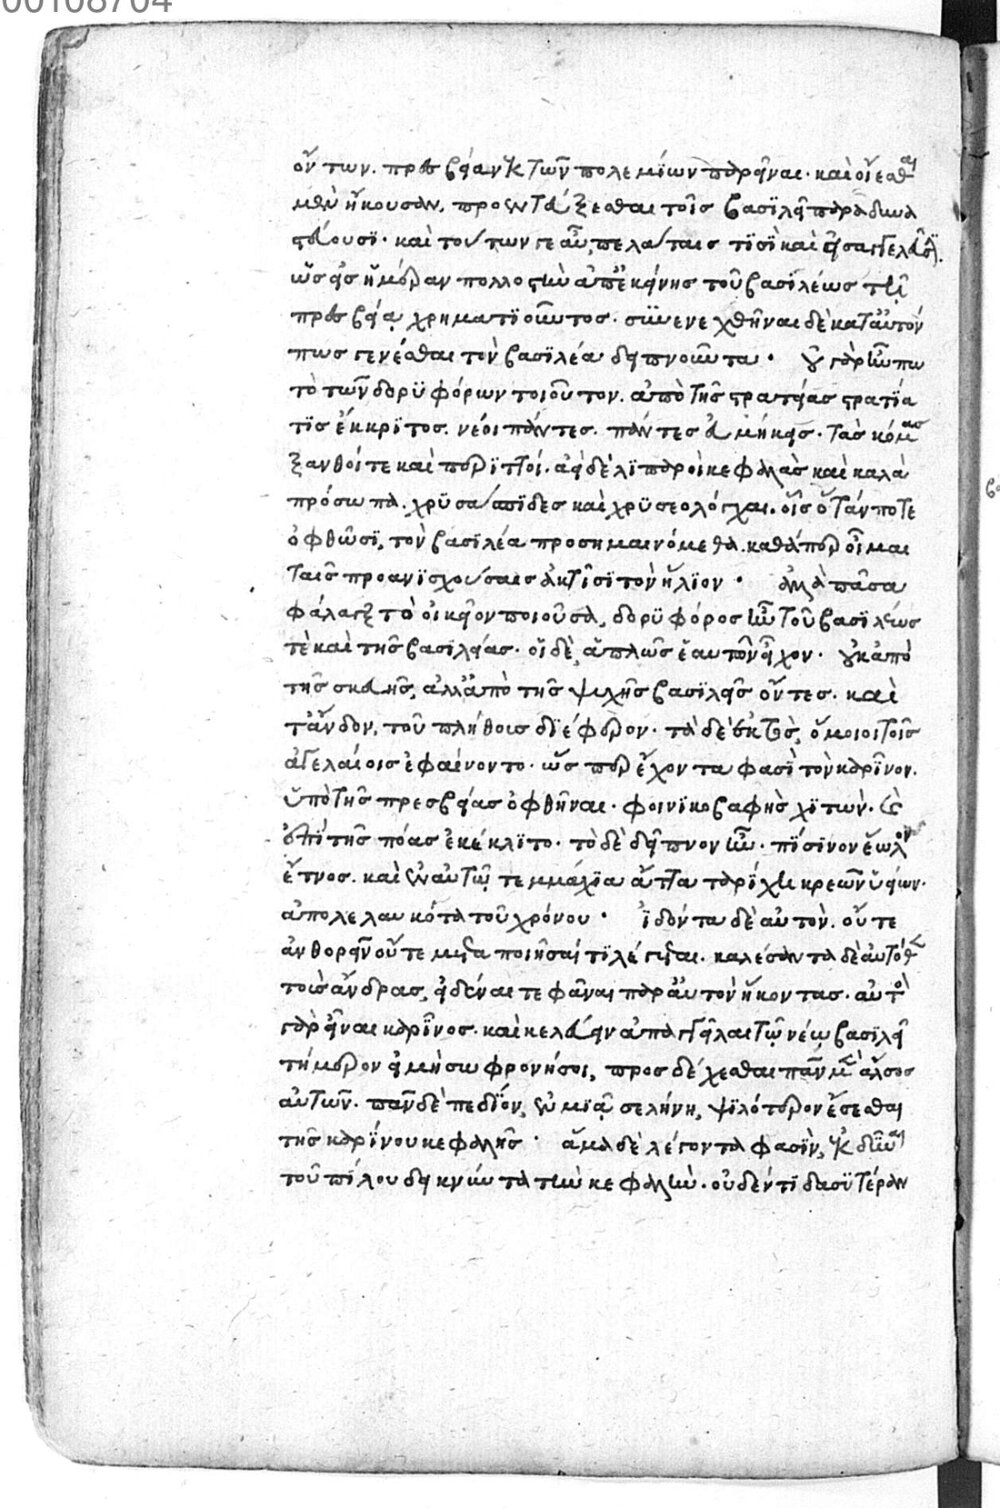 00108704
ὄντων. πρεσβείαν ἐκ τῶν πολεμίων παρεῖναι. καὶ οἴεσθαι
μὲν ἤκουσαν, προστάξεσθαι τοῖς βασιλεῖ παραδυνα
στεύουσϊ. καὶ τούτων γε αὖ, πελάταις τϊσὶ καὶ εἰσαγγελεῦσϊ.
ὡς εἰς ἡμέραν πολλοστὴν ἀπὸ σκηνῆς τοῦ βασιλέως τῇ
πρεσβείᾳ χρηματϊοῦντος. συνενεχθῆναι δὲ κατ' αὐτόν
πως γενέσθαι τὸν βασιλέα δειπνοῦντα. οὐ γὰρ ἦν πω
τὸ τῶν δορϋφόρων τοιοῦτον. ἀπὸ τῆς στρατείας στρατιά
τϊς ἔκκρϊτος. νέοι πάντες. πάντες εὐμήκεις. τὰς κόμας
ξανθοί τε καὶ περιττοί. ἀεὶ δὲ λϊπαροὶ κεφαλὰς καὶ καλὰ
πρόσωπα. χρϋσάσπϊδες καὶ χρϋσεολόγχαι. οἷς ὅταν ποτε
ὀφθῶσϊ, τὸν βασιλέα προσημαινόμεθα. καθάπερ οἶμαι
ταῖς προανϊσχούσαις ἀκτῖσϊ τὸν ἥλϊον. ἀλλὰ πᾶσα
φάλαγξ τὸ οἰκεῖον ποιοῦσα, δορϋφόρος ἦν τοῦ βασιλέως
τὲ καὶ τῆς βασιλείας. οἵ δὲ, ἁπλῶς ἑαυτῶν εἶχον. οὐκ ἀπὸ
τῆς σκευῆς, ἀλλ' ἀπὸ τῆς ψυχῆς βασιλεῖς ὄντες. καὶ
τἄνδον, τοῦ πλήθους δϊέφερον. τὰ δὲ ἐκτὸς, ὅμοιοι τοῖς
ἀγελαίοις ἐφαίνοντο. ὥσπερ ἔχοντα φασὶ τὸν καρῖνον.
ὑπὸ τῆς πρεσβείας ὀφθῆναι. φοινϊκοβαφὴς χϊτών.
ἐπὶ τῆς πόας ἐκέκλϊτο. τὸ δὲ δεῖπνον ἦν. πίσϊνον ἕωλον
ἔτνος. καὶ ἐν αὐτῷ τεμμάχϊα ἄττα ταρίχη κρεῶν ὑείων.
ἀπολελαυκότα τοῦ χρόνου. ἰδόντα δὲ αὐτὸν. οὔτε
ἀνθορεῖν οὔτε μεταποιῆσαί τϊ λέγεται. καλέσαντα δὲ αὐτόθεν
τοὺς ἄνδρας, εἰδέναι τε φᾶναι παρ' αὐτὸν ἥκοντας. αὐτὸς
γὰρ εἶναι καρῖνος. καὶ κελεύειν ἀπαγγεῖλαι τῷ νέῳ βασιλεῖ
τήμερον εἰ μὴ σωφρονήσοι, προσδέχεσθαι πᾶν μὲν ἄλσος
αὐτῶν. πᾶν δὲ πεδίον, ἐν μϊᾷ σελήνῃ, ψϊλότερον ἔσεσθαι
τῆς καρίνου κεφαλῆς. ἅμα δὲ λέγοντα φασὶν, ἐκδῦναι
τοῦ πίλου δεικνύντα τὴν κεφαλὴν. οὐδέν τι δασϋτέραν